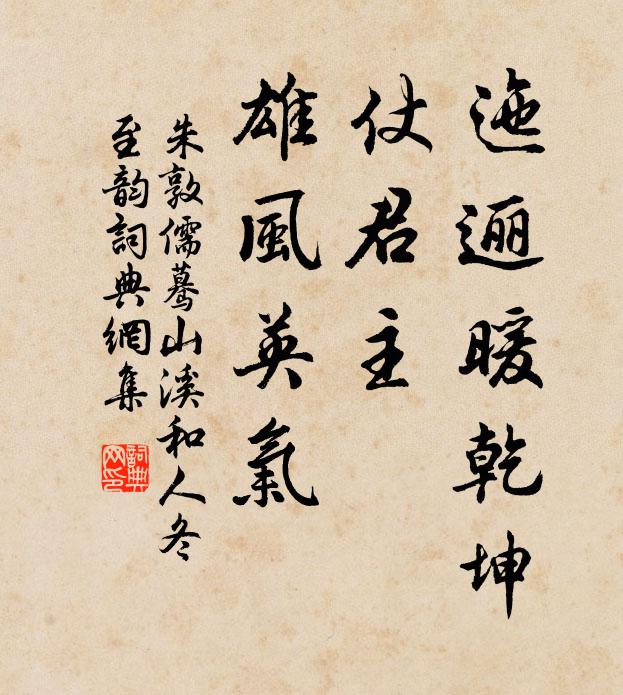 迤逦暖乾坤
仗君主
雄風英氣
朱敦儒蓦山溪和人冬
至韵詞典網集
詞典网印